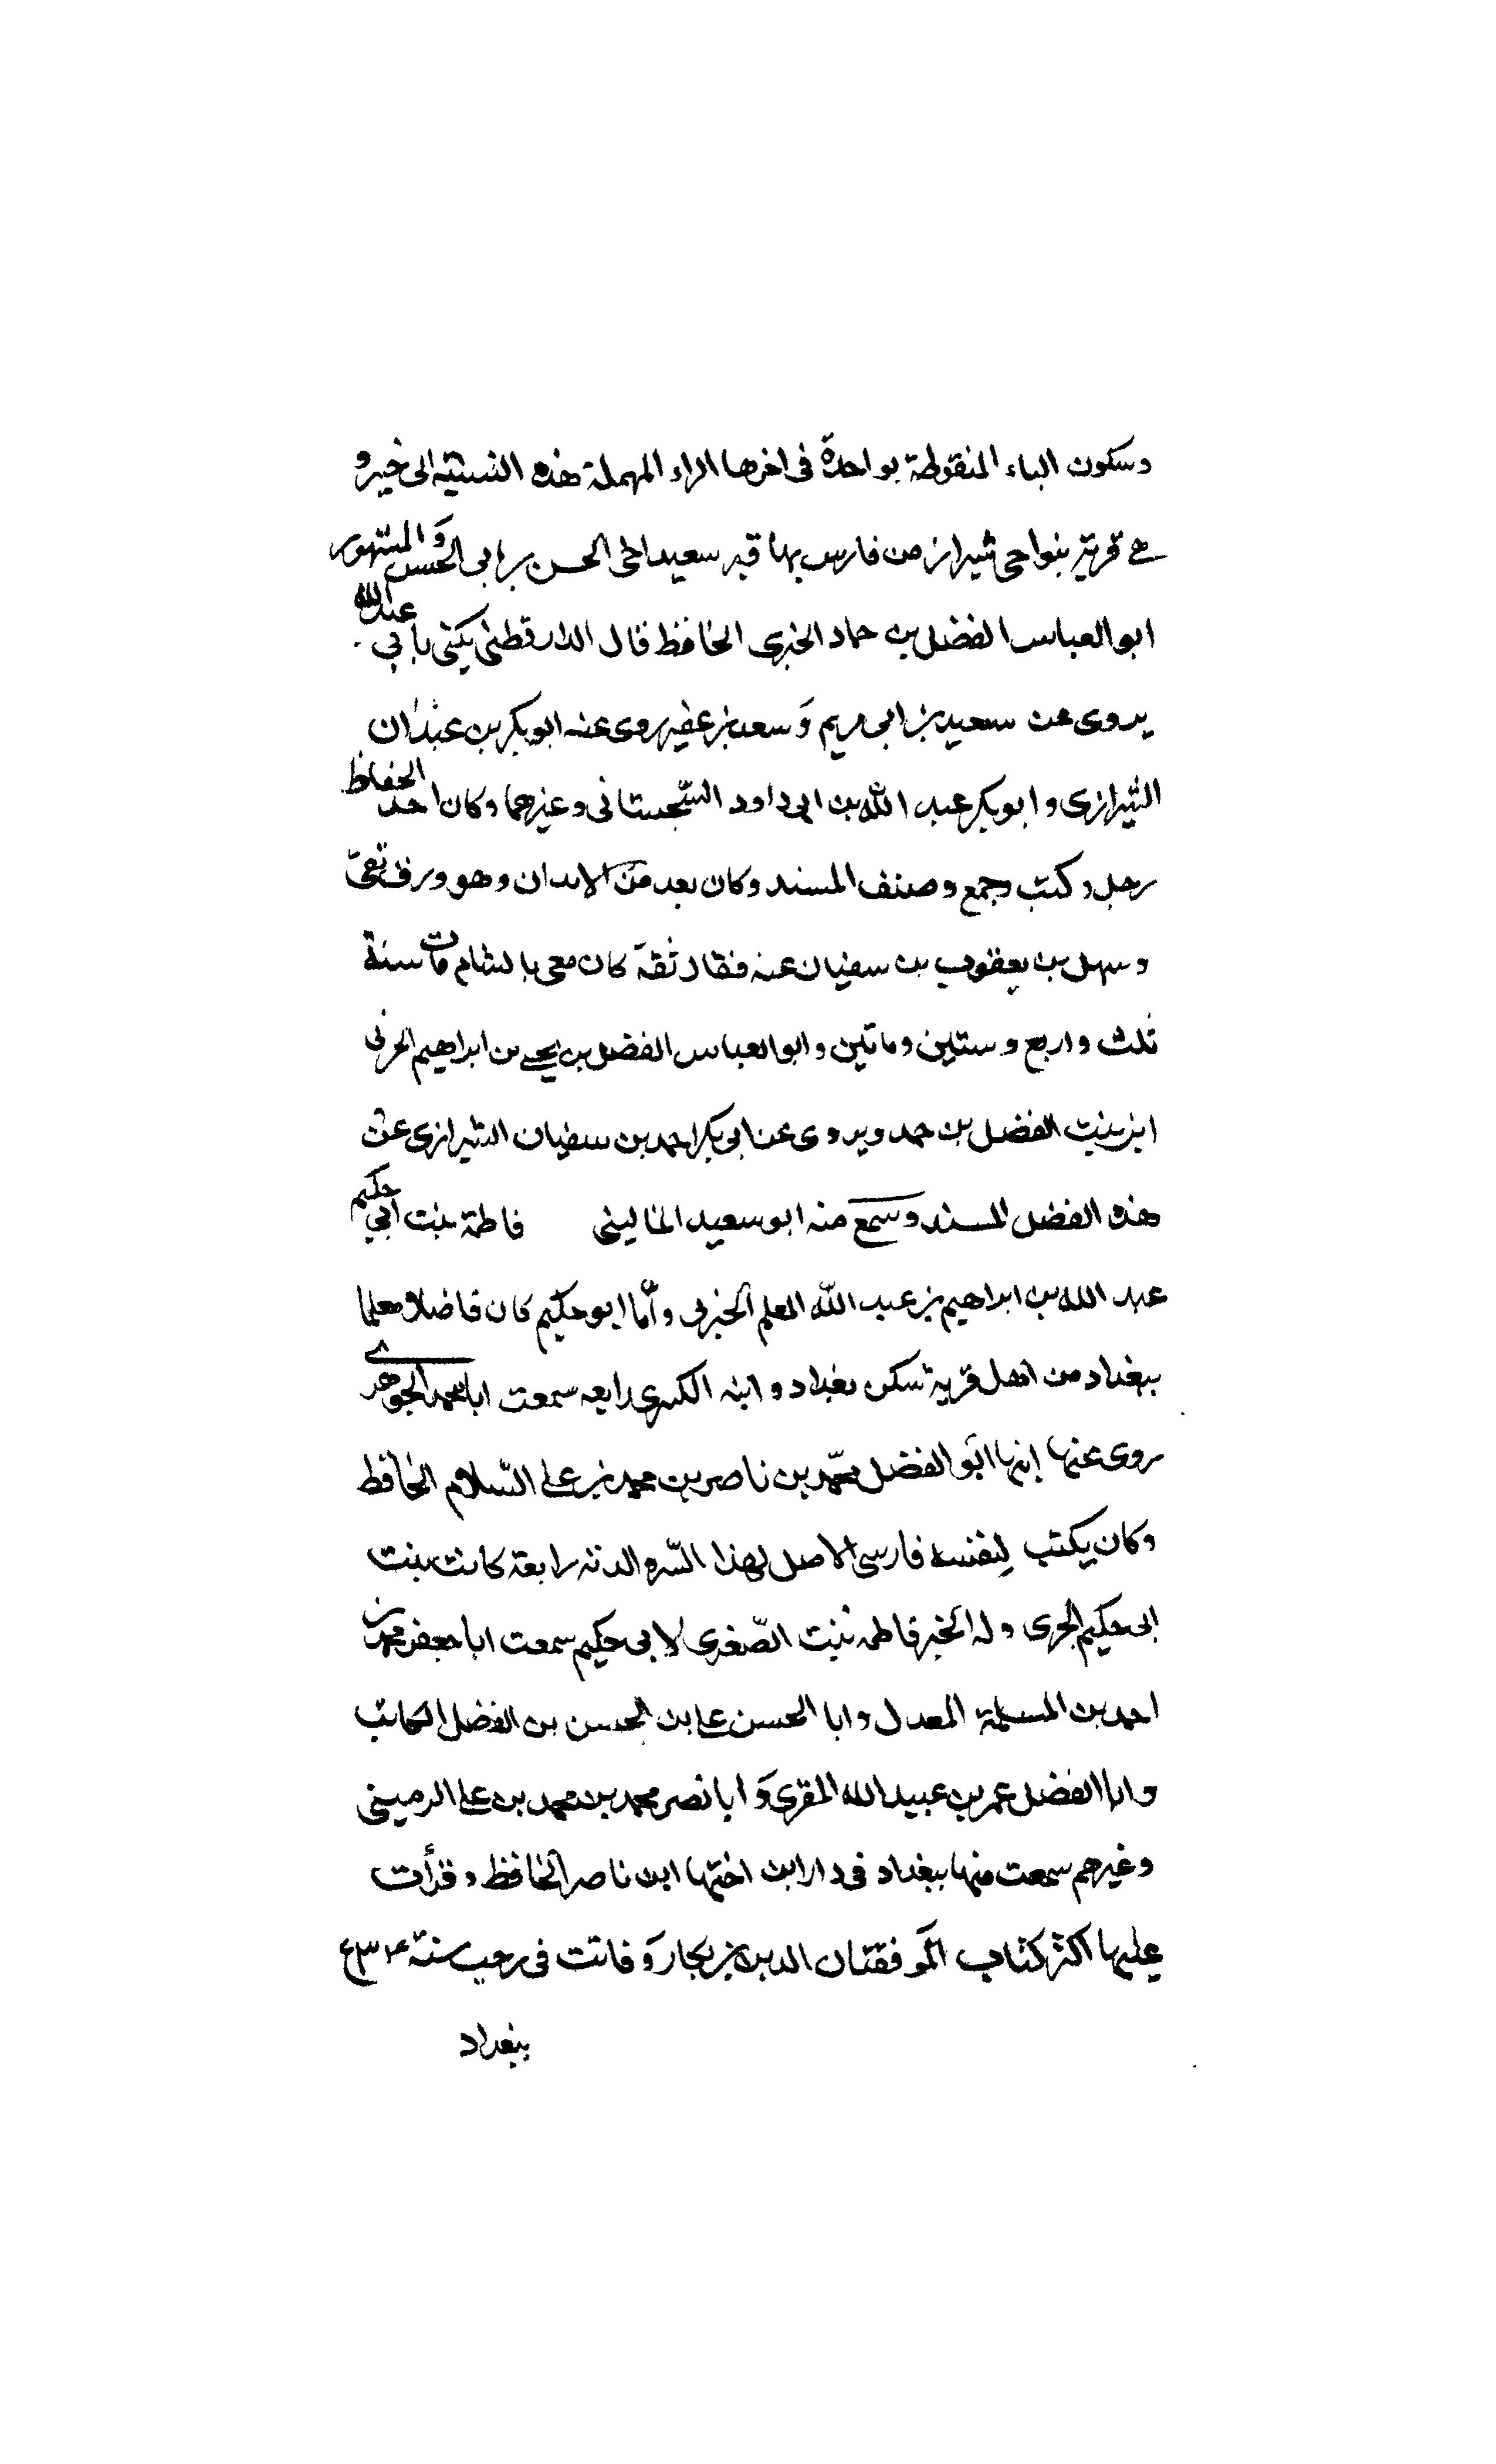 وسكون الباء المنقوطة بواحدة فى اخرها الراء المهملة هذه النسبة الى خبر و
هى قرية بنواحى شيراز من فارس بها قبر سعيد اخى الحسن بن ابى الحسن و المشهور
ابو العباس الفضل بن حماد الخبرى الحافظ قال الدارقطنى يكنى بابى عبد الله
يروى عن سعيد بن ابى مريم و سعد بن عفير روى عنه ابو بكر بن عبدان
الشيرازى و ابو بكر عبد الله بن ابى داود السّجستانى وغيرهما وكان احد الحفاظ
رحل وكتب وجمع وصنف المسند وكان يعد من الابدال وهو ورق تقىّ
وسهل بن يعقوب بن سفيان عنه فقال ثقة كان معى بالشام مات سنة
ثلث و اربع و ستين وماتين وابو العباس الفضل بن يحيى بن ابراهيم الخبرى
ابن بنت الفضل بن حمد ويروى عن ابى بكر احمد بن سفيان الشيرازى عن
هذه الفضل المسند وسمع منه ابو سعيد المالينى فاطمة بنت ابي حكيم
عبد الله بن ابراهيم بن عبد الله المعلم الخبرى وأمّا ابو حكيم كان فاضلا معلما
ببغداد من اهل قرية سكن بغداد و ابنه الكبرى رابعه سمعت ابا محمد الجوهرى
روى عنها ابنها ابو الفضل محمّد بن ناصر بن محمد بن على السّلام الحافظ
وكان يكتب لنفسه فارسى الاصل لهذا السّر والدته رابعة كانت بنت
ابى حكيم الخبرى وله الخبر فاطمه بنت الصّغرى لابى حكيم سمعت ابا جعفر محمد بن
احمد بن المسلمة المعدل وابا الحسن على بن الحسن بن الفضل الكاتب
وابا الفضل عمر بن عبيد الله المقرى و ابا نصر محمد بن محمد بن على الرمينى
وغيرهم سمعت منها ببغداد فى دار ابن اختها ابن ناصر الحافظ وقرأت
عليها اكثر كتاب الموفقتان الدبير بن بكار و فاتت فى رجب سنة
ببغداد